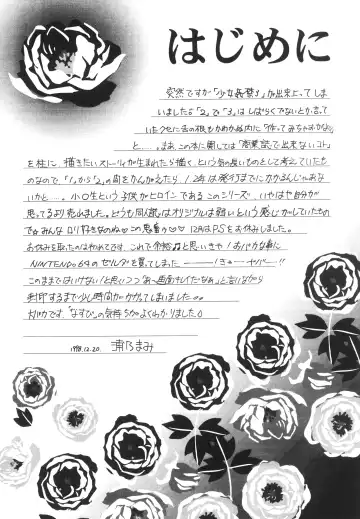 はじめに
突然ですが「少女 3」が出来上ってしま
いましたよ「2」で「3」はしばらくでないとか言って
いたクセに舌の根もかわかぬ内に「作ってみちゃおかなぁ」
と…。まあ、この本に関しては「商業誌で出来ないコト」
を柱に、描きたいストーリィが生まれたら描く、という気の長いものとして考えていたも
のなので、「1」から「2」の間をかんがえたら1、2年は発行までにかかるんじゃあな
いかと…。小○生という子供がヒロインであるこのシリーズ、いやはや自分が
思ってるより売れました。どうも同人誌はオリジナルは難しいという感じがしていたもの
でみんなロリ好きなのね♡この思 ♡♡ 12月はPSをお休みしました。
お休みを取ったのははじめてです。これで余裕♫と思いきや!おバカな事に
NINTENDO64のゼルダを買ってしまったーーー!きゃーヤバー!!
このままではいけない!と思いつつ「あ〜画面キレイだなぁ」と言いながら
封印するまで少し時間がかかってしまいました。。。
バカです、「なすび」の気持ちがよくわかりました
1998.12.20. 浦乃まみ